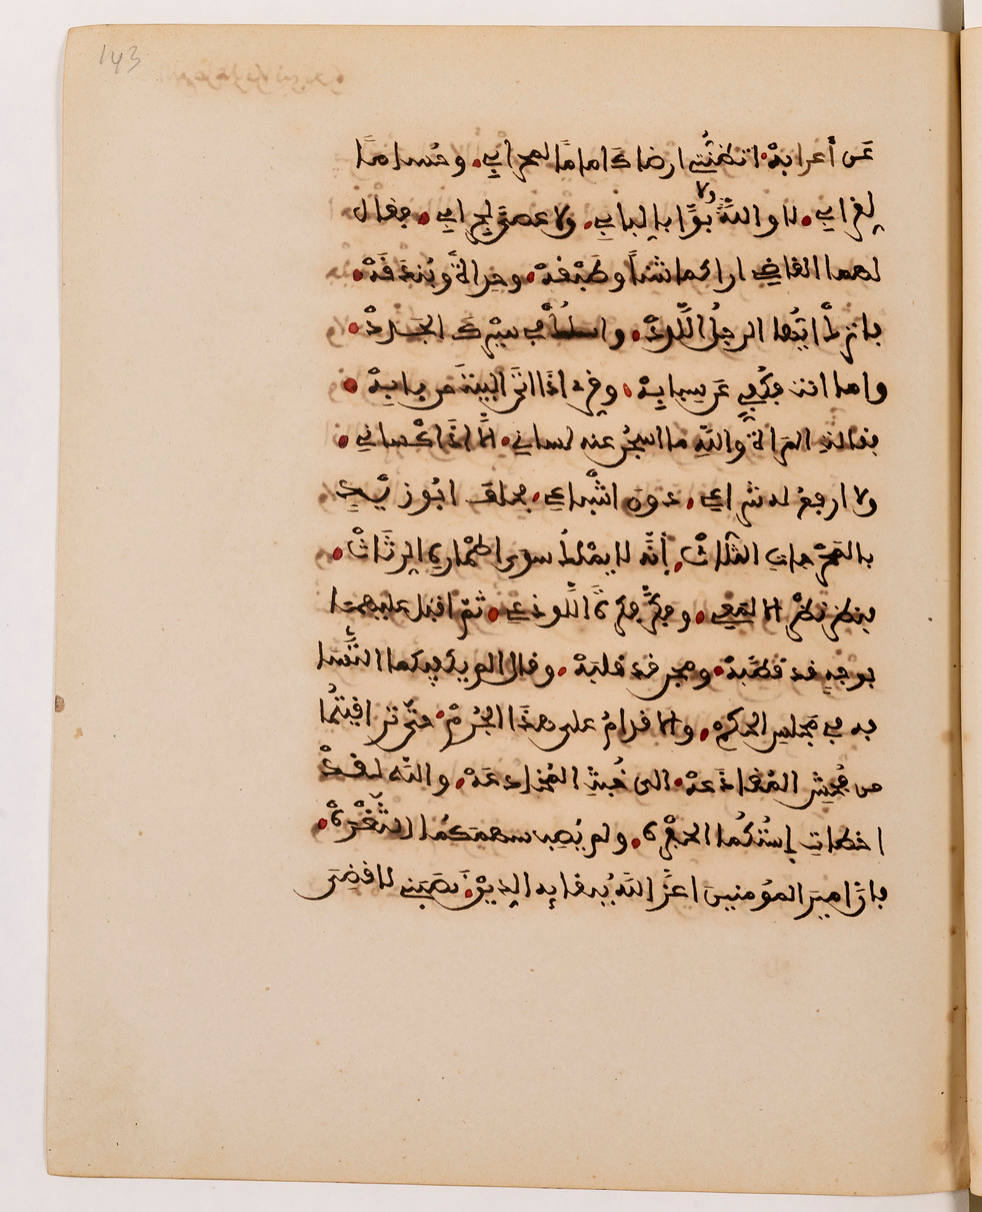 143
عَن أعرابه • اتظنُّني ارضاكَ امامًا لمحرابي • وحُساما
لِقرابي • لا والله ولا بوَّابا لبابي • ولا عصًى لجرابي • فقال
لهما القاضي اراكما شنًّا وطَبَقَهْ • وحِدَأةً وبُنْدُقَهْ •
فاترك ايُّها الرجلُ اللَّدَدْ • واسلُك في سيْرِكَ الجَدَدْ •
واما انتِ فكُفّي عن سبابِهْ • وقِرّي اذا اتَى البيتَ من بابِهْ •
فقالتِ المرأةُ واللهِ ما اسجُنُ عنه لساني • الّا اذا كساني •
ولا ارفعُ له شراعي • دون اشْباعي • فحلفَ ابو زيدٍ
بالمُحَرّجاتِ الثلاثْ • أنّه لا يملكُ سوى اطْمارِهِ الرثَاثْ •
فنظر نظرَ الالمعي • وفكّر فكرةَ اللّوذعي • ثمّ اقبل عليهما
بوجهٍ قد قطّبهْ • ومجنٍ قد قلبَهْ • وقال الم يكفِكما التّسافُه
به في مجلسِ الحكم • والاقدامُ على هذا الجُرْم • حتّى تراقيتُما
من فُحْشِ المُقاذَعهْ • الى خُبثِ المُخادعَهْ • والله لقدْ
اخطاتِ اِستُكُما الحفرهْ • ولم يُصِب سهمكُما الثُّغْرهْ •
فانَّ اميرَ المؤمنينَ اعزَّ اللهُ ببقايهِ الدِينْ • نصَبَني لاقضِيَ